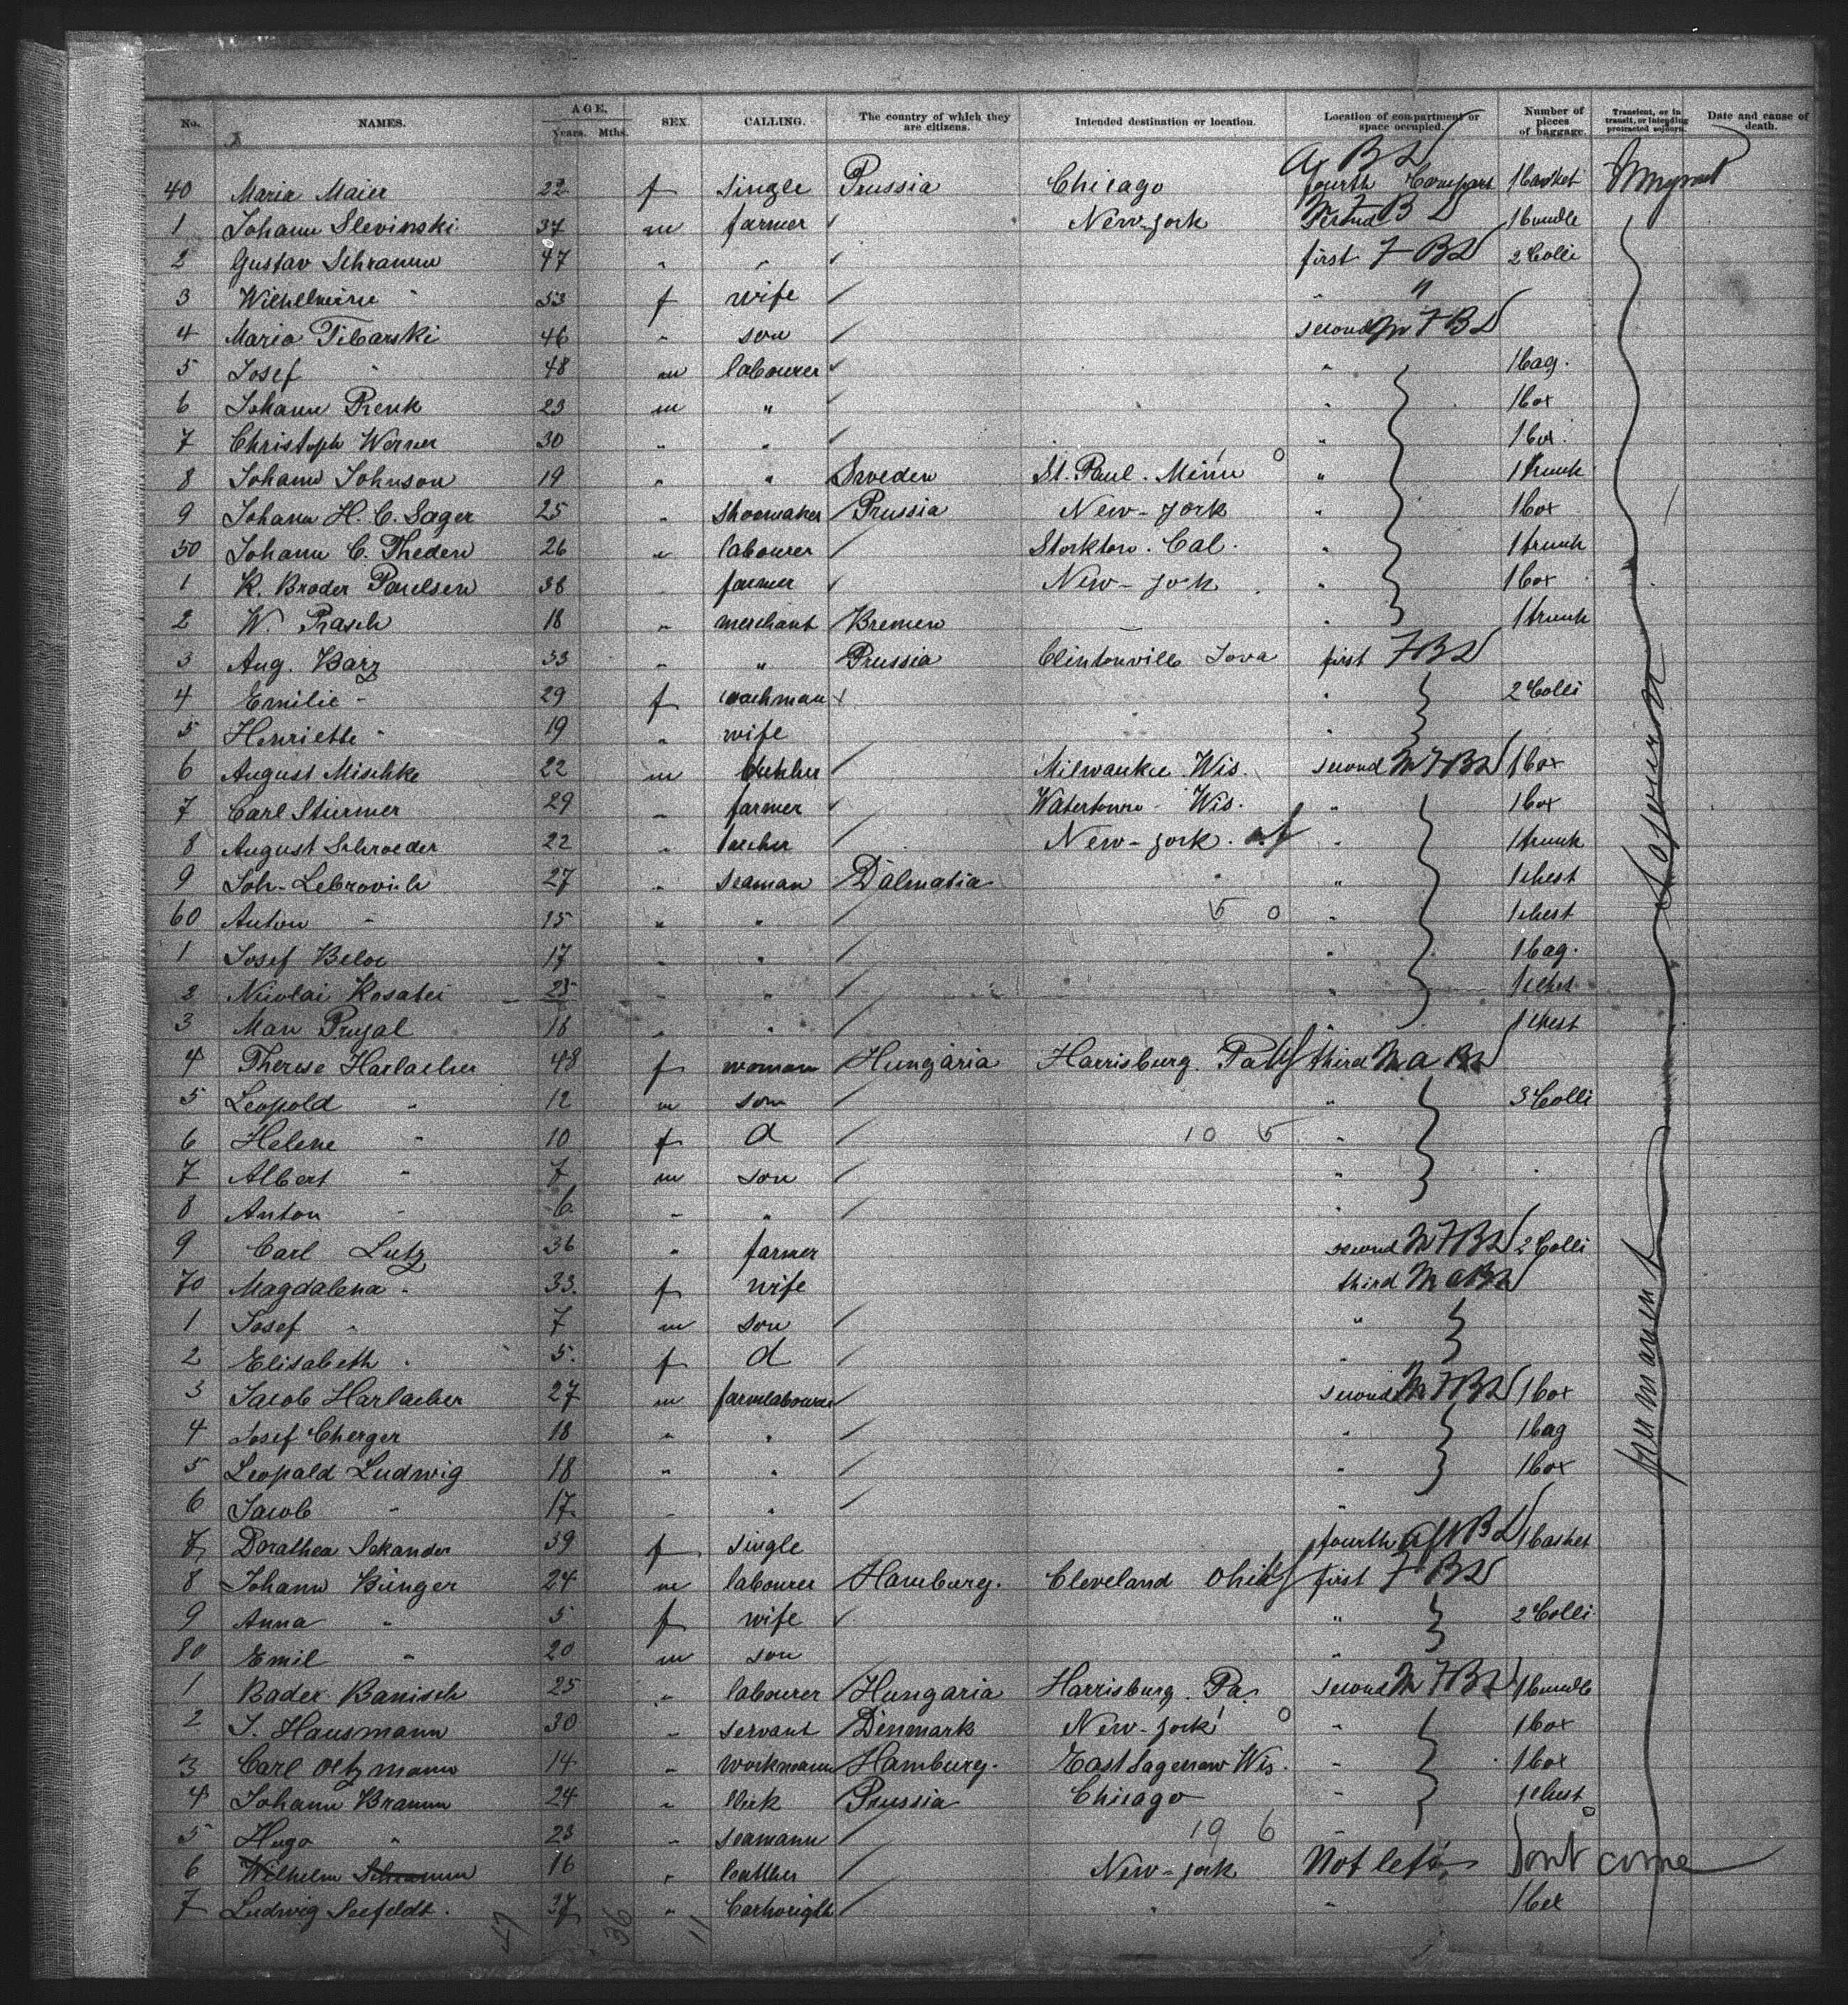 No. NAMES. AGE. Years. Mths. SEX. CALLING. The country of which they are citizens. Intended destination or location. Location of compartment or space occupied. Number of pieces of baggage. Transient, or in transit, or intending protracted sojourn. Date and cause of death.
40 Maria Maier 22 f single Prussia Chicago fourth Compart 1 basket
1 Johann Slevinski 37 m farmer New-York 1 bundle
2 Gustav Schramm 47 " " first F B D 2 Colli
3 Wilhelmine " 53 f wife " "
4 Maria Tibarski 46 " son second m F B D
5 Josef " 48 m labourer " 1 bag.
6 Johann Prenk 23 m " " 1 box
7 Christoph Werner 30 " " " 1 box.
8 Johann Johnson 19 " " Sweden St. Paul. Minn " 1 trunk
9 Johann H. C. Sager 25 " shoemaker Prussia New-York " 1 box
50 Johann C. Theden 26 " labourer Stockton. Cal. " 1 trunk
1 K. Broder Paulsen 38 " farmer New-York " 1 box
2 W. Prasch 18 " merchant Bremen " 1 trunk
3 Aug. Barz 33 " " Prussia Clintonville Iova first F B D
4 Emilie " 29 f coachman " 2 Colli
5 Henriette " 19 " wife "
6 August Mischke 22 m butcher Milwaukee Wis. second M F B D 1 box
7 Carl Stürmer 29 " farmer Watertown Wis. " 1 box
8 August Schroeder 22 " New-York. " 1 trunk
9 Joh. Lebrovich 27 " seaman Dalmatia " " 1 chest
60 Anton " 15 " " 5 0 " 1 chest
1 Josef Beloe 17 " " " 1 bag.
2 Nicolai Kosatei 25 " " " 1 chest
3 16 " " " 1 chest
4 Therese Harlacher 48 f woman Hungaria Harrisburg. Pa third M a B D
5 Leopold " 12 m son " 3 Colli
6 Helene " 10 f d 10 5 "
7 Albert " 7 m son "
8 Anton " 6 " " "
9 Carl Lutz 36 " farmer second M F B D 2 Colli
70 Magdalena " 33. f wife third M a B D
1 Josef " 7 m son "
2 Elisabeth " 5. f d "
3 Jacob Harlacher 27 m farmlabourer second M F B D 1 box
4 Josef Cherger 18 " " " 1 bag
5 Leopold Ludwig 18 " " " 1 box
6 Jacob " 17 " " "
7 Dorathea Sekander 39 f single fourth aft B D 1 basket
8 Johann Bünger 24 m labourer Hamburg. Cleveland Ohio first F B D
9 Anna " 5 f wife " 2 Colli
80 Emil " 20 m son "
1 Bader Banisch 25 " labourer Hungaria Harrisburg. Pa. second M F B D 1 bundle
2 J. Hausmann 30 " servant Denmark New-York " 1 box
3 Carl Oltzmann 14 " workmann Hamburg. East Sagenaw Wis. " 1 box
4 Johann Bramm 24 " Prussia Chicago " 1 chest
5 Hugo " 23 " seamann 19 6 "
6 Wilhelm Schramm 16 " New-York Not left Dont come
7 Ludwig Seefeldt. 27 " Cartwright " " 1 box
36 11
permanent